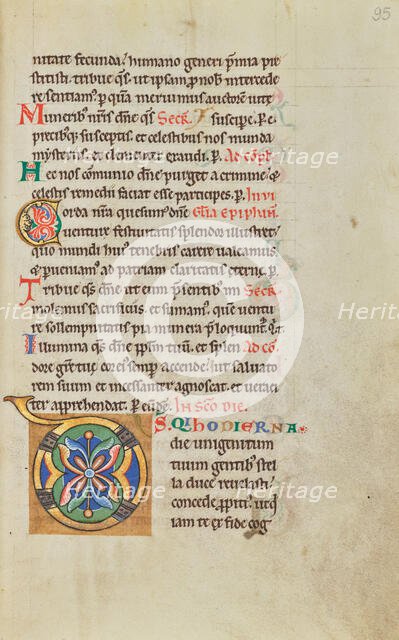 95
nitate fecunda, humano generi p̄mia pre
stitisti. tribue q̄s, ut ipsam p nob̄ intercede
re sentiam᷒. p quā meruimus auctorē uite
Munerib᷒ nr̄is dn̄e q̄s Secr̄. suscipe. P. e.
precib᷒q; susceptis. et celestibus nos munda
mysteriis. et clementer exaudi. p. Ad cōpl̄.
Hec nos cōmunio dn̄e purget a crimine. et
celestis remedii faciat esse participes. p. In vi
Corda nr̄a quesum᷒ dn̄e Gl̄a epiphan̄.
uenture festiuitatis splendor illustret.
quo mundi hui᷒ tenebris carere ualeamus.
et pueniam᷒ ad patriam claritatis eterne. p.
Tribue q̄s dn̄e ut eum p̄sentib᷒ in Secr̄.
molemus sacrificiis. et sumam᷒. que ventu
re sollempnitatis pia munera ploquunt᷑.
Illumina q̄s dn̄e pp̄lm tuū. et splen Ad cō.
dore gr̄e tue cor ei᷒ semp accende. ut saluato
rem suum et incessanter agnoscat. et uerac
ter apprehendat. P. eund̄. In sc̄o die.
DS. Qi hodierna
die unigenitum
tuum gentib᷒ stel
la duce reuelasti.
concede ppiti᷒. ut q;
iam te ex fide cog
Heritage
Heritage
Heritage
Heritage
Heritage
Heritage